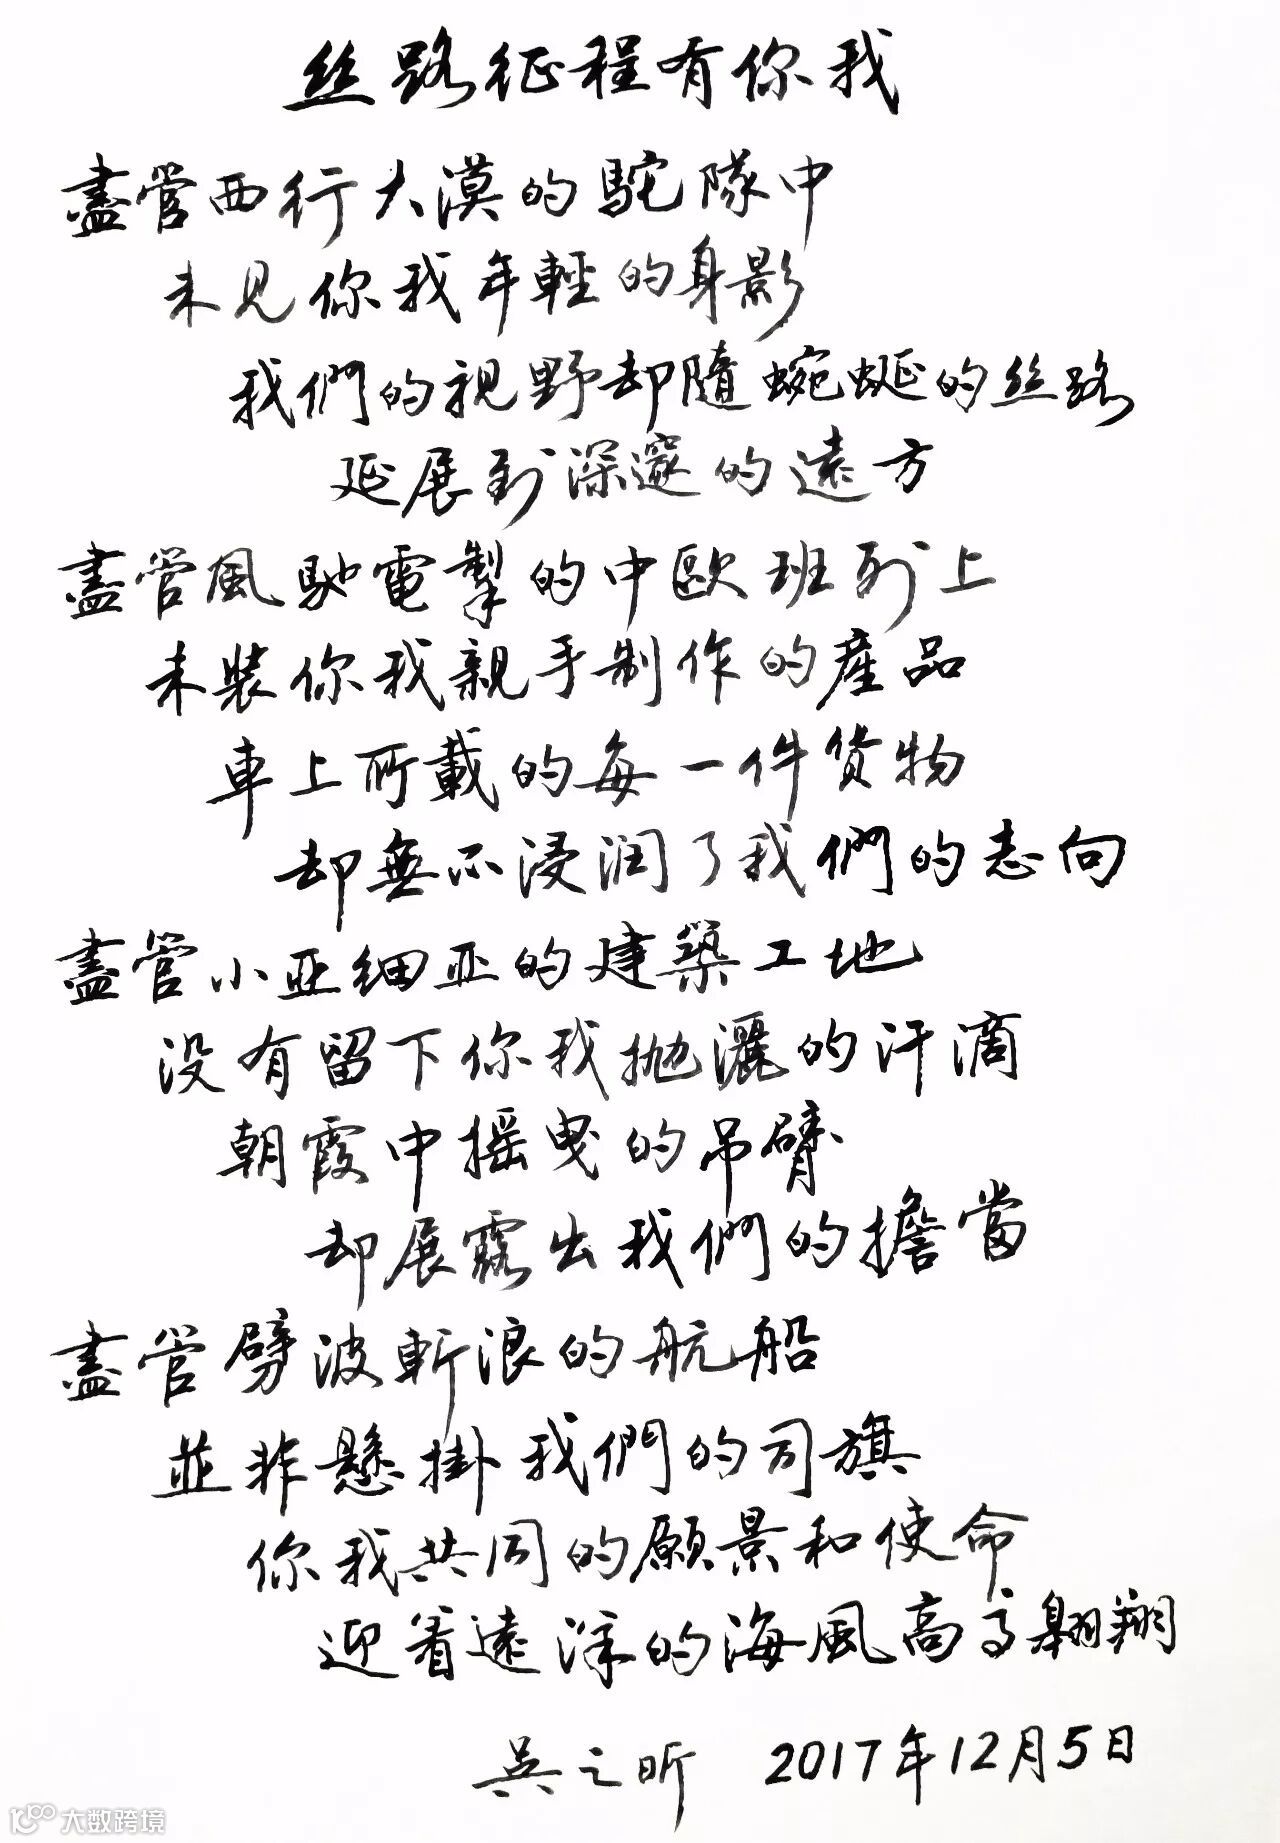 丝路征程有你我
盡管西行大漠的駝隊中
未見你我年輕的身影
我們的視野却隨蜿蜒的丝路
延展到深邃的遠方
盡管風馳電掣的中歐班列上
未裝你我親手制作的產品
車上所載的每一件货物
却無不浸润了我們的志向
盡管小亚细亚的建築工地
没有留下你我抛灑的汗滴
朝霞中摇曳的吊臂
却展露出我們的擔當
盡管劈波斬浪的航船
並非懸掛我們的司旗
你我共同的願景和使命
迎着遠洋的海風高高翱翔
吴之昕 2017年12月5日
大数跨境